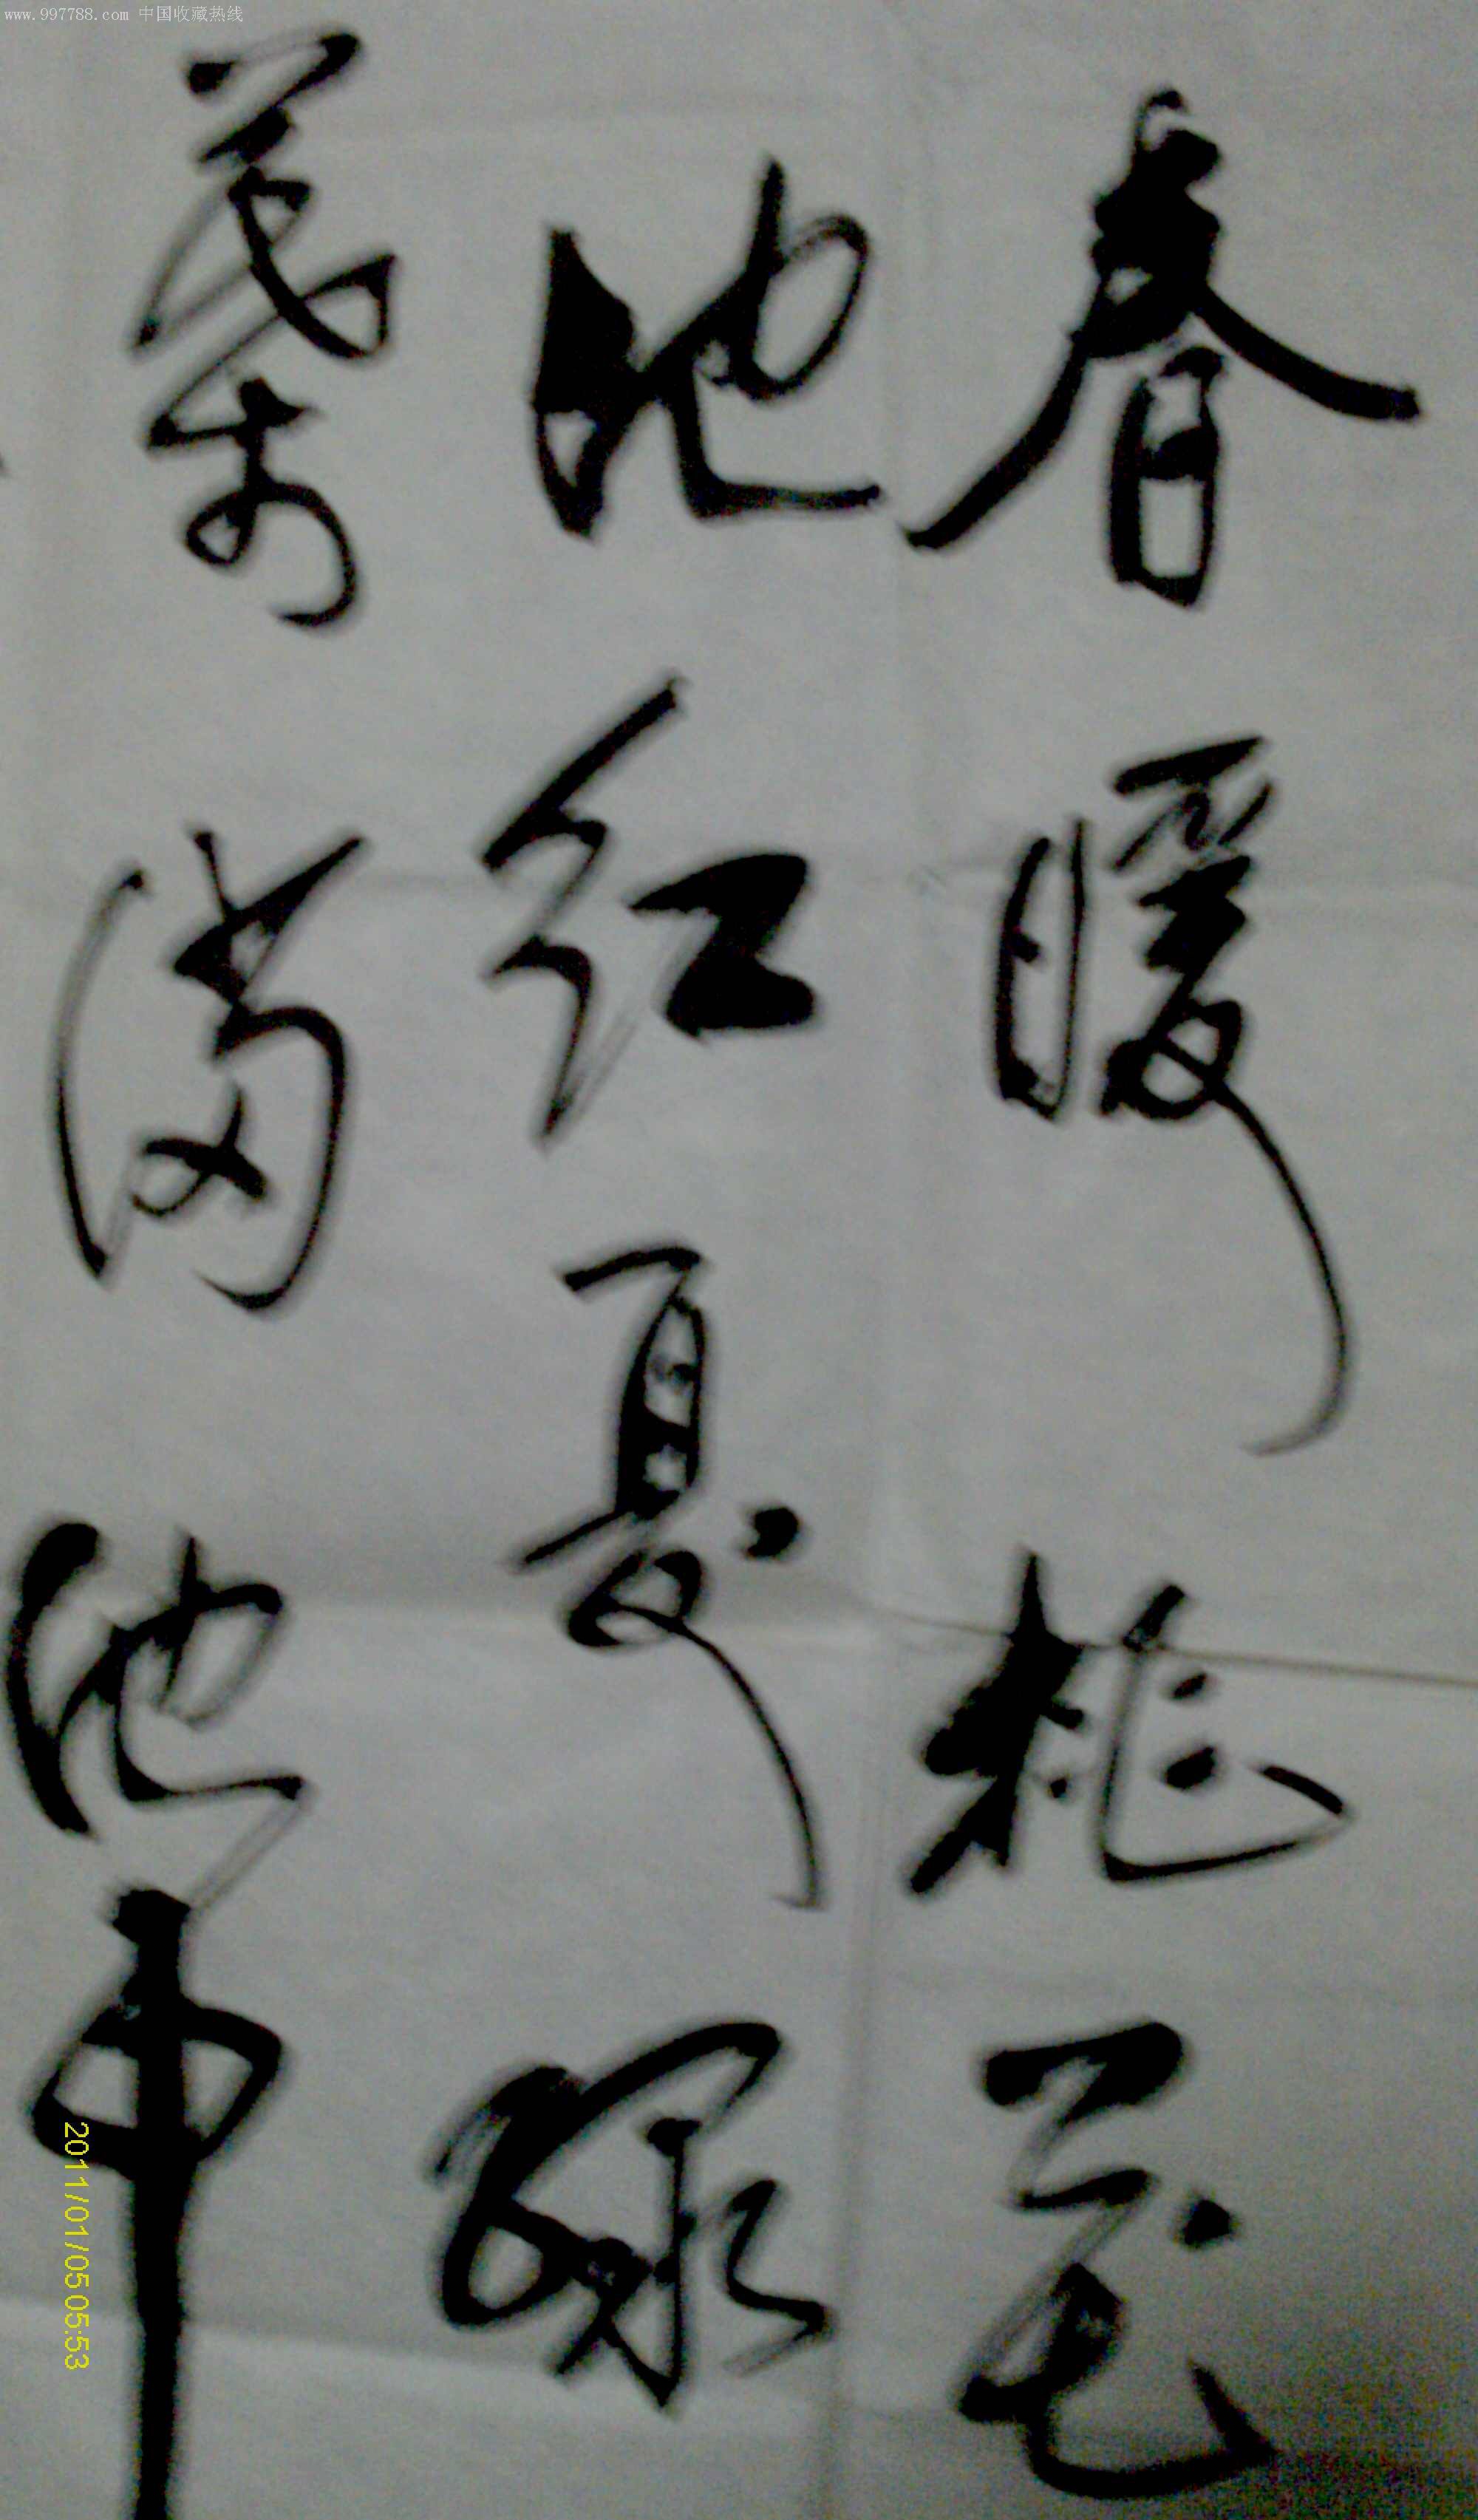 www.997788.com 中国收藏热线
春暖桃花
地红夏绿
叶满池中
2011/01/05 05:53